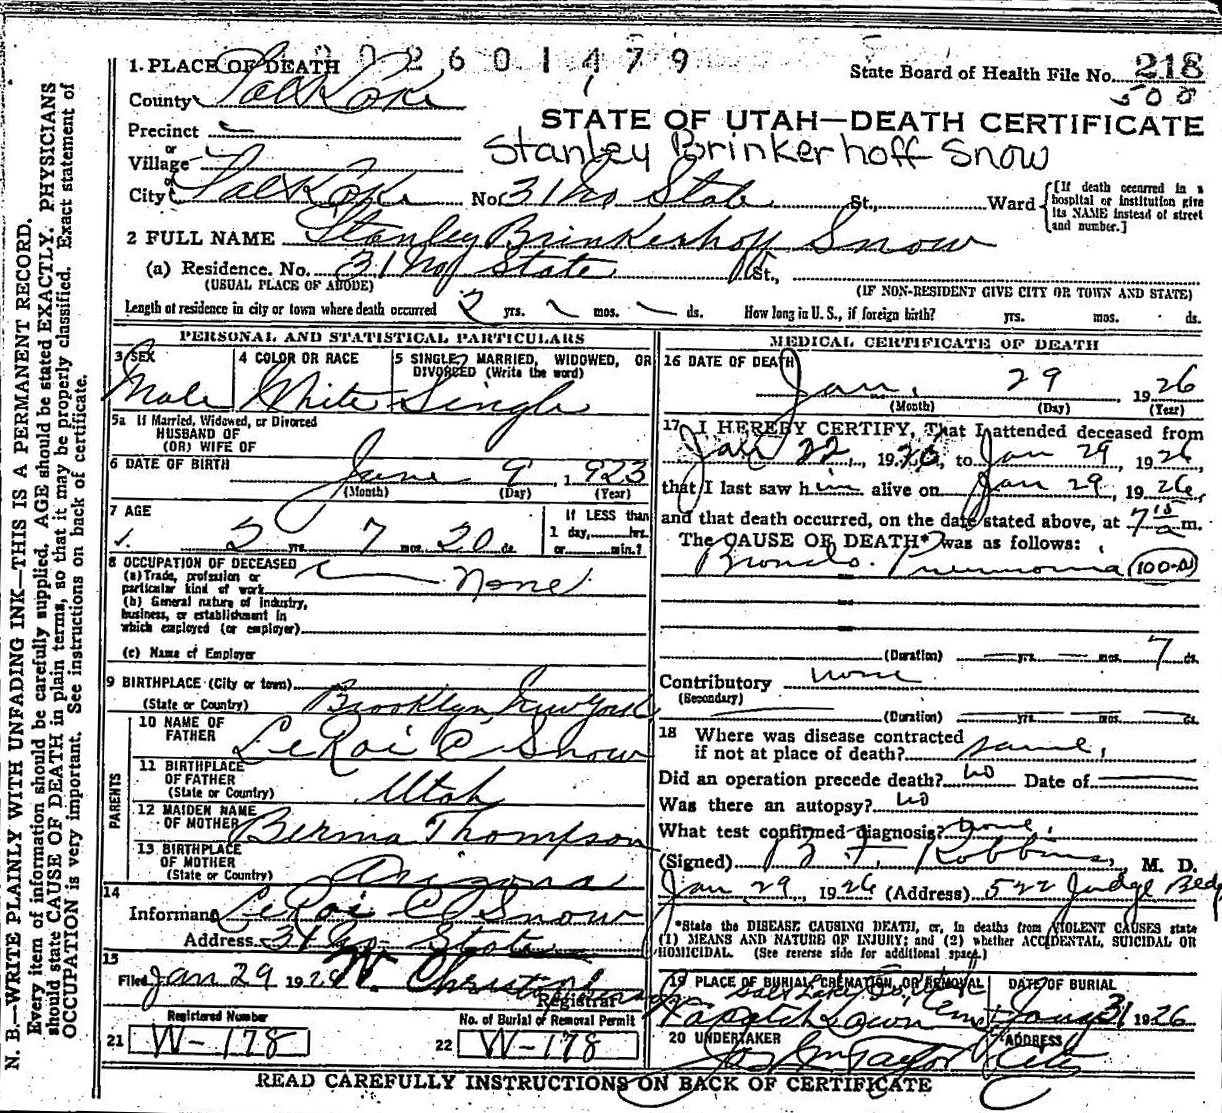 2 0 2 6 0 1 4 7 9
1. PLACE OF DEATH
State Board of Health File No. 218
500
County Salt Lake
STATE OF UTAH—DEATH CERTIFICATE
Precinct
or
Village
Stanley Brinkerhoff Snow
or
City Salt Lake No. 31 No State St., Ward
[If death occurred in a hospital or institution give its NAME instead of street and number.]
2 FULL NAME Stanley Brinkerhoff Snow
(a) Residence. No. 31 No State St.,
(USUAL PLACE OF ABODE) (IF NON-RESIDENT GIVE CITY OR TOWN AND STATE)
Length of residence in city or town where death occurred 2 yrs. mos. ds. How long in U. S., if foreign birth? yrs. mos. ds.
PERSONAL AND STATISTICAL PARTICULARS
3 SEX 4 COLOR OR RACE 5 SINGLE, MARRIED, WIDOWED, OR DIVORCED (Write the word)
Male White Single
5a If Married, Widowed, or Divorced
HUSBAND OF
(OR) WIFE OF
6 DATE OF BIRTH June 9, 1923
(Month) (Day) (Year)
7 AGE 2 yrs. 7 mos. 20 ds.
If LESS than
1 day, hrs.
or min.?
8 OCCUPATION OF DECEASED
(a) Trade, profession or
particular kind of work none
(b) General nature of industry,
business, or establishment in
which employed (or employer)
(c) Name of Employer
9 BIRTHPLACE (City or town)
(State or Country) Brooklyn, New York
PARENTS
10 NAME OF
FATHER LeRoi C Snow
11 BIRTHPLACE
OF FATHER
(State or Country) Utah
12 MAIDEN NAME
OF MOTHER Burma Thompson
13 BIRTHPLACE
OF MOTHER
(State or Country) Arizona
14
Informant LeRoi C Snow
Address 31 No State
15
Filed Jan 29 1926
Registrar
Registered Number No. of Burial or Removal Permit
21 W-178 22 W-178
MEDICAL CERTIFICATE OF DEATH
16 DATE OF DEATH
Jan. 29, 1926
(Month) (Day) (Year)
17 I HEREBY CERTIFY, That I attended deceased from
Jan 22, 1926, to Jan 29, 1926,
that I last saw him alive on Jan 29, 1926,
and that death occurred, on the date stated above, at 7 15 a m.
The CAUSE OF DEATH* was as follows:
Broncho. Pneumonia (100-A)
(Duration) yrs. mos. 7 ds.
Contributory none
(Secondary)
(Duration) yrs. mos. ds.
18 Where was disease contracted
if not at place of death? same.
Did an operation precede death? no Date of
Was there an autopsy? no
What test confirmed diagnosis? none.
(Signed) B F Robbins, M. D.
Jan 29, 1926 (Address) 522 Judge Bldg
*State the DISEASE CAUSING DEATH, or, in deaths from VIOLENT CAUSES state
(1) MEANS AND NATURE OF INJURY; and (2) whether ACCIDENTAL, SUICIDAL OR
HOMICIDAL. (See reverse side for additional space.)
19 PLACE OF BURIAL, CREMATION, OR REMOVAL DATE OF BURIAL
Salt Lake
Wasatch Lawn Cem Jany 31 1926
20 UNDERTAKER ADDRESS
Jos Wm Taylor City
READ CAREFULLY INSTRUCTIONS ON BACK OF CERTIFICATE
N. B.—WRITE PLAINLY WITH UNFADING INK—THIS IS A PERMANENT RECORD.
Every item of information should be carefully supplied. AGE should be stated EXACTLY. PHYSICIANS
should state CAUSE OF DEATH in plain terms, so that it may be properly classified. Exact statement of
OCCUPATION is very important. See instructions on back of certificate.